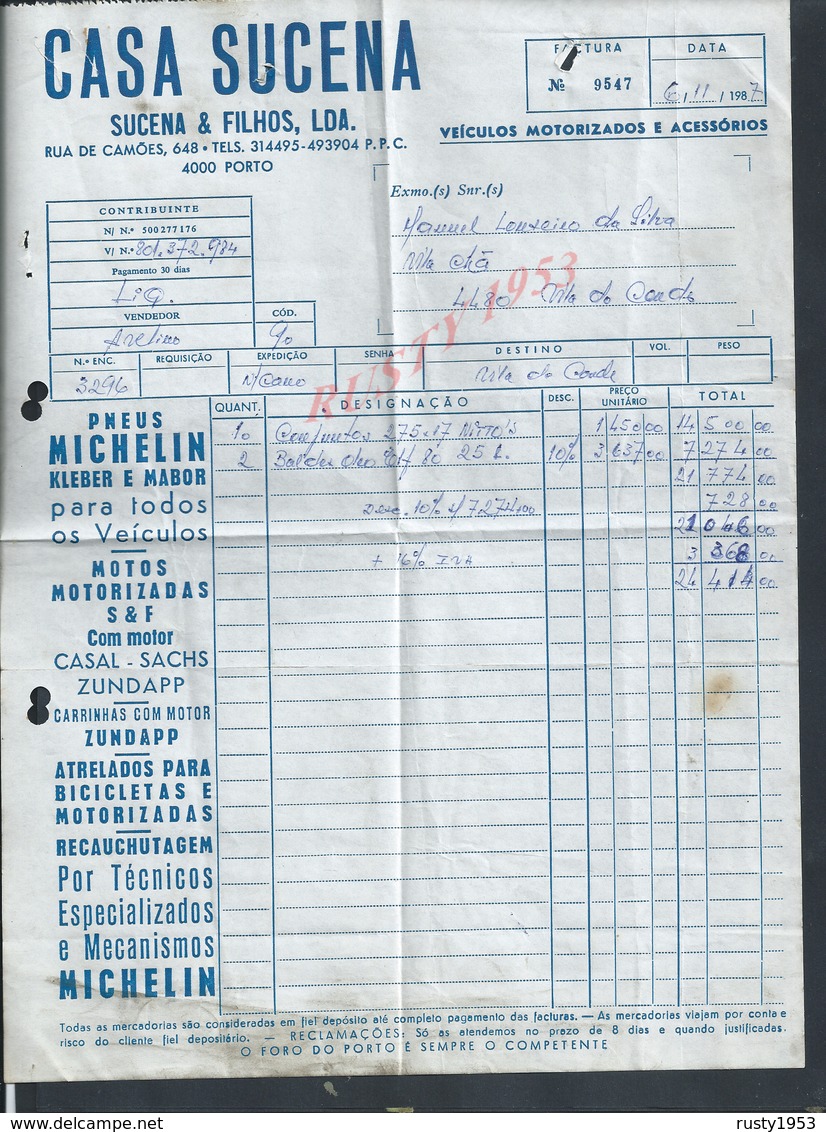 CASA SUCENA
SUCENA & FILHOS, LDA.
RUA DE CAMÕES, 648 • TELS. 314495-493904 P.P.C.
4000 PORTO
FACTURA
Nº 9547
DATA
6/11/1987
VEÍCULOS MOTORIZADOS E ACESSÓRIOS
CONTRIBUINTE
N/ N.º 500277176
V/ N.º 801.372.984
Pagamento 30 dias
Liq.
VENDEDOR
CÓD.
Avelino
90
Exmo.(s) Snr.(s)
Manuel Loureiro da Silva
Vila Chã
4480 Vila do Conde
RUSTY 1953
N.º ENC.
REQUISIÇÃO
EXPEDIÇÃO
SENHA
DESTINO
VOL.
PESO
3296
N/Carro
Vila do Conde
QUANT.
DESIGNAÇÃO
DESC.
PREÇO UNITÁRIO
TOTAL
10 Conjuntos 275x17 1 450 00 14 500 00
2 Baldes oleo 80 25 L. 10% 3 637 00 7 274 00
21 774 00
Desc. 10% s/ 7.274$00 728 00
21 046 00
+ 16% IVA 3 368 00
24 414 00
PNEUS
MICHELIN
KLEBER E MABOR
para todos
os Veículos
MOTOS
MOTORIZADAS
S & F
Com motor
CASAL - SACHS
ZUNDAPP
CARRINHAS COM MOTOR
ZUNDAPP
ATRELADOS PARA
BICICLETAS E
MOTORIZADAS
RECAUCHUTAGEM
Por Técnicos
Especializados
e Mecanismos
MICHELIN
Todas as mercadorias são consideradas em fiel depósito até completo pagamento das facturas. — As mercadorias viajam por conta e
risco do cliente fiel depositário. — RECLAMAÇÕES: Só as atendemos no prazo de 8 dias e quando justificadas.
O FORO DO PORTO É SEMPRE O COMPETENTE
delcampe.net
rusty1953